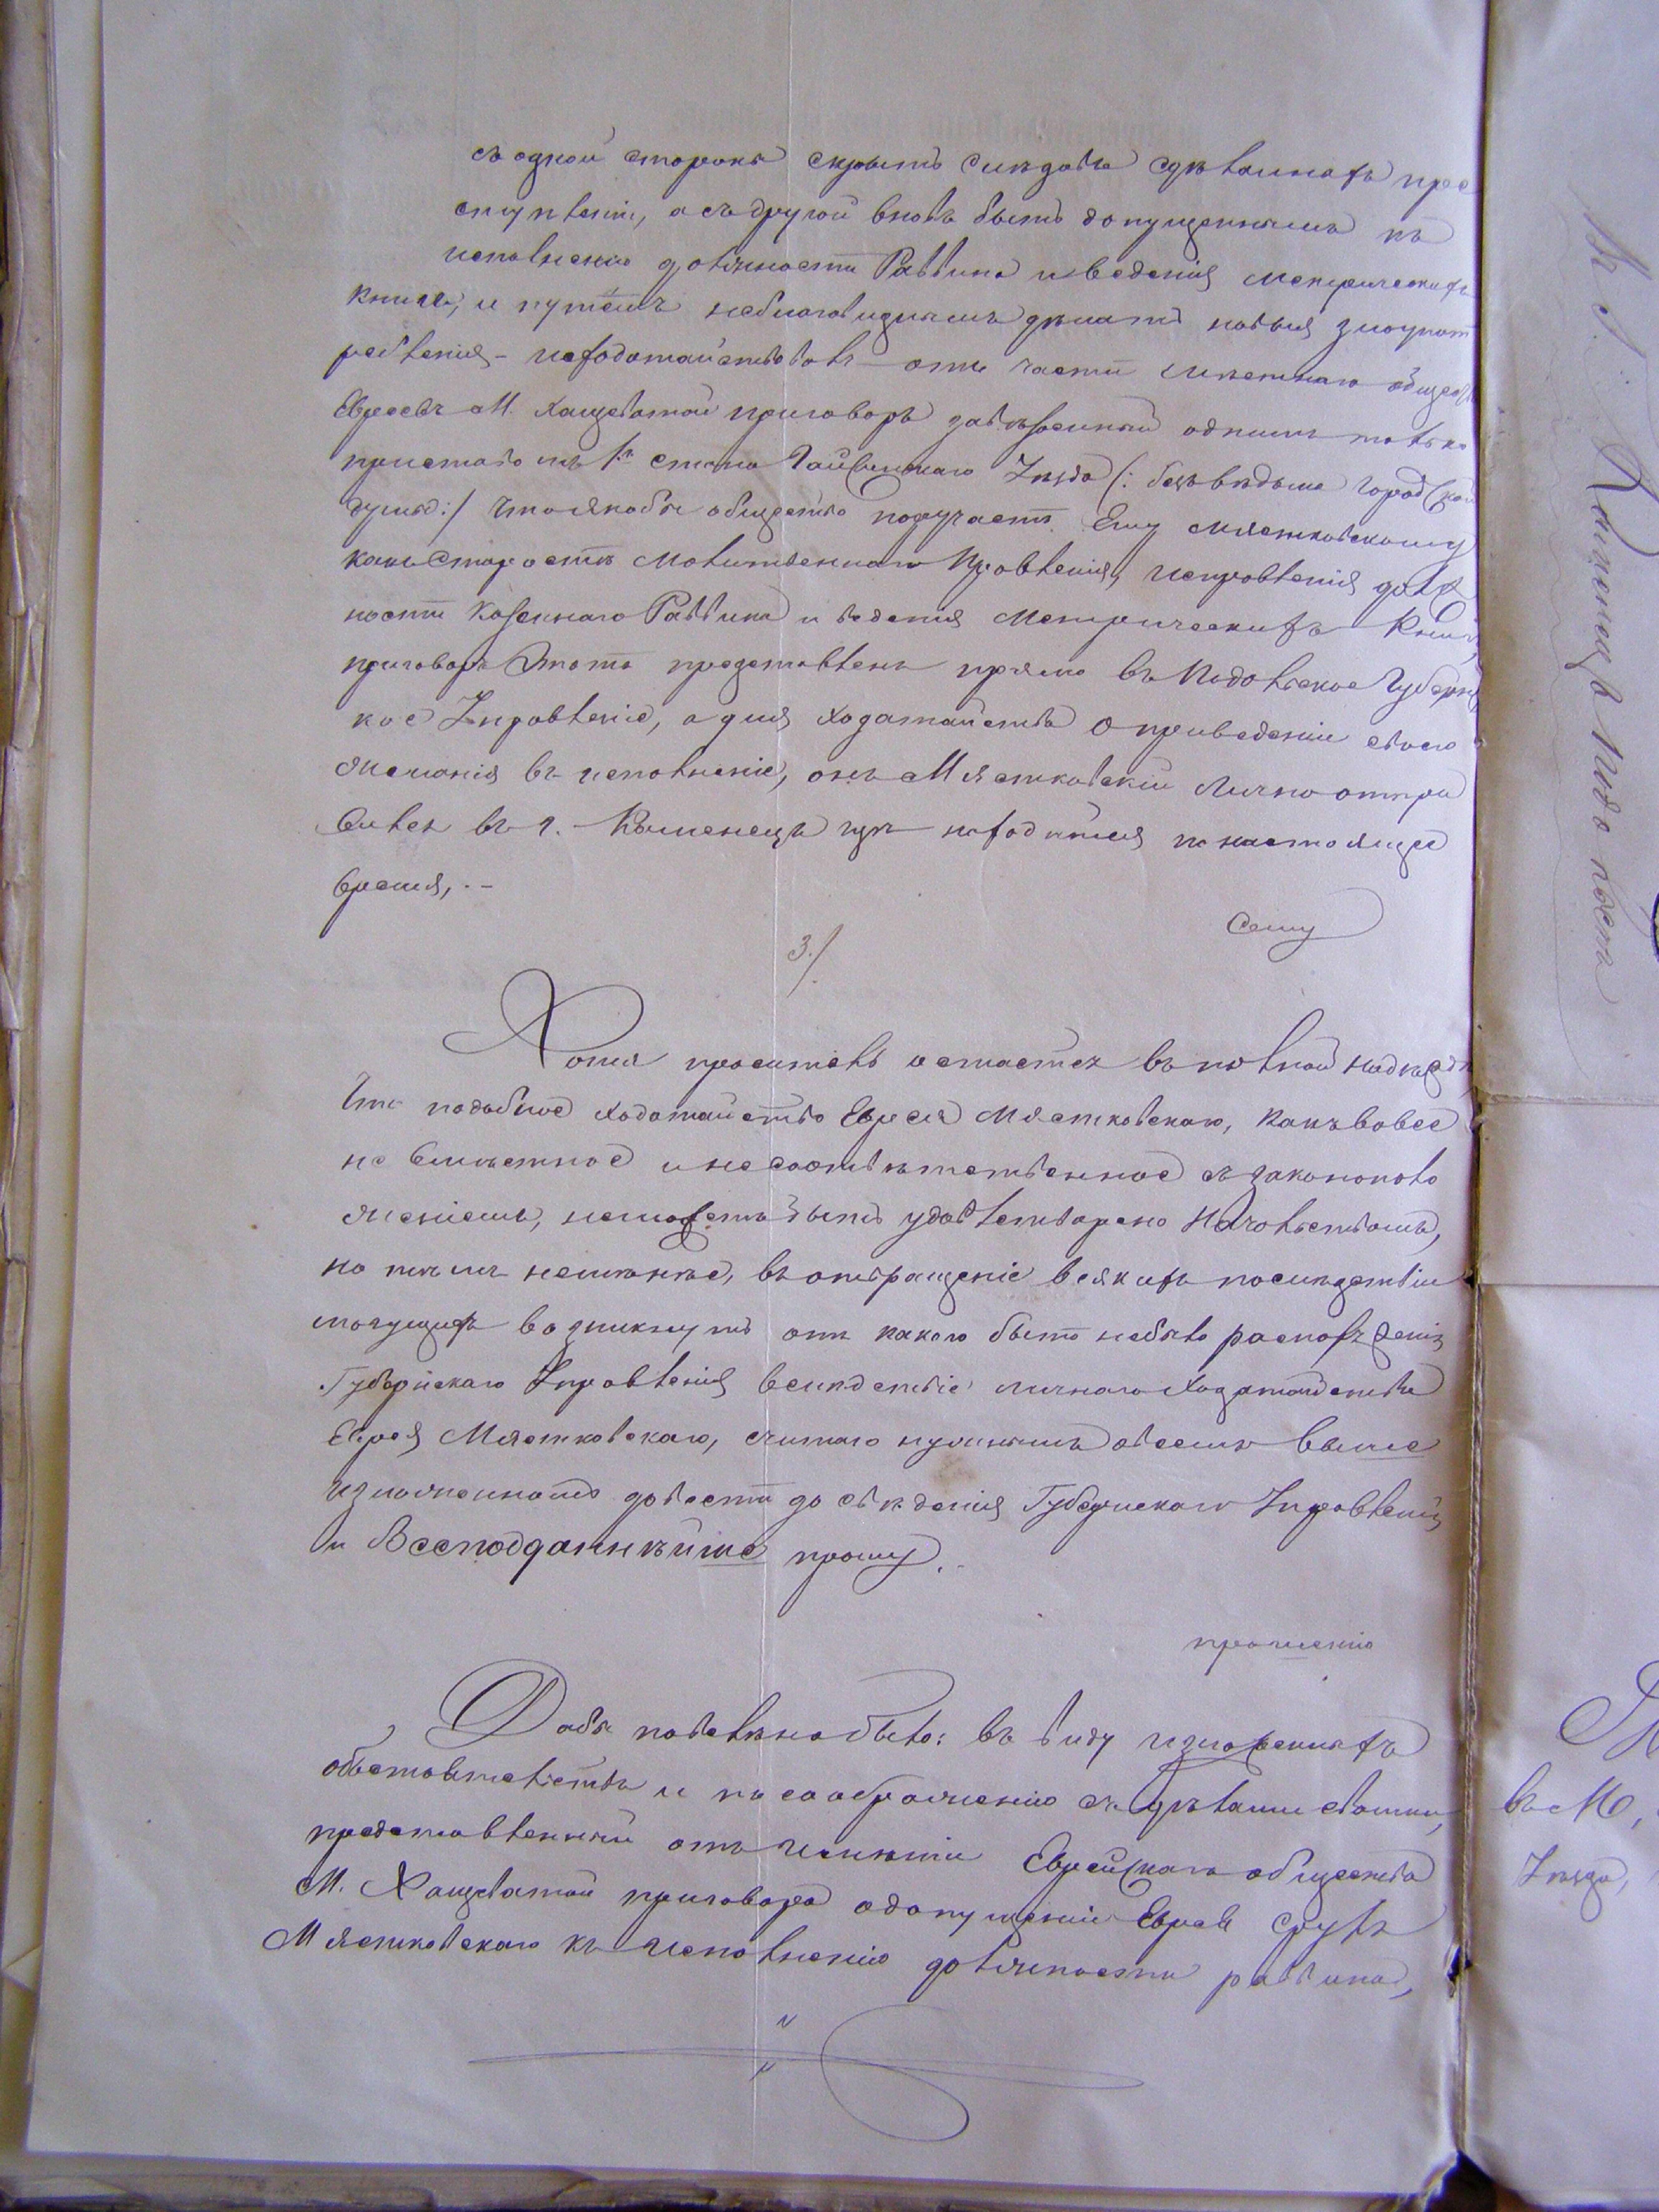 съ одной стороны скрыть слѣды сдѣланныхъ прес
тупленій, а съ другой вновь быть допущеннымъ къ
исполненію должности Раввина и веденія метрическихъ
книгъ, и путемъ неблаговиднымъ дѣлать новыя злоупот
ребленія – исходатайствовалъ отъ части мѣстнаго общест
Евреевъ М. Хащеватой приговоръ завѣренный однимъ только
приставомъ 1го стана Гайсинскаго Уѣзда (: безъ вѣдома Городской
думы :/ что якобы общество поручаетъ Ему Мястковскому
какъ Старостѣ Молитвеннаго Правленія, исправленія долж
ности Казеннаго Раввина и веденія Метрическихъ Книгъ,
приговоръ Этотъ представленъ прямо въ Подольское Губернс
кое Управленіе, а для ходатайства о приведеніи своего
желанія въ исполненіе, онъ Мястковскій Лично отпра
вился въ г. Каменецъ гдѣ находится по настоящее
время, . –
сему
3./
Хотя проситель остается въ полной надеждѣ
что подобное ходатайство Еврея Мястковскаго, какъ вовсе
не вмѣстное и несоотвѣтственное съ законополо
женіемъ, неможетъ быть удовлетворено Начальствомъ,
но тѣмъ неменѣе, въ отвращеніе всякихъ послѣдствій
могущихъ возникнуть отъ какого бы то небыло распоряженія
Губернскаго Управленія вслѣдствіе личнаго ходатайства
Еврея Мястковскаго, считаю нужнымъ о всемъ выше
изложенномъ довести до свѣденія Губернскаго Управленія
и Всеподданнѣйше прошу. –
прошенію
Дабы повелѣно было: въ виду изложенныхъ
обстоятельствъ и по соображенію съ дѣлами своими,
представленный отъ части Еврейскаго общества
М. Хащеватой приговоръ о допущеніи Еврея Сруль
Мястковскаго къ исполненію должности раввина,
въ М,
Уѣзда,